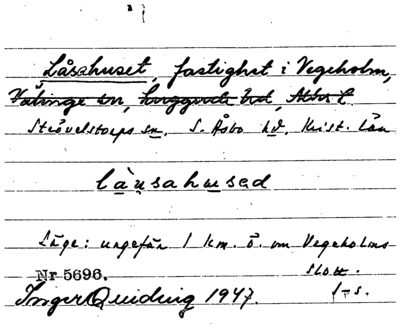 Låsahuset, fastighet i Vegeholm,
Välinge sn, Luggude hd,
Strövelstorps sn, S. Åsbo hd, Krist. län
Läge: ungefär 1 km. ö. om Vegeholms
slott.
Nr 5696.
Inger Quiding 1947.